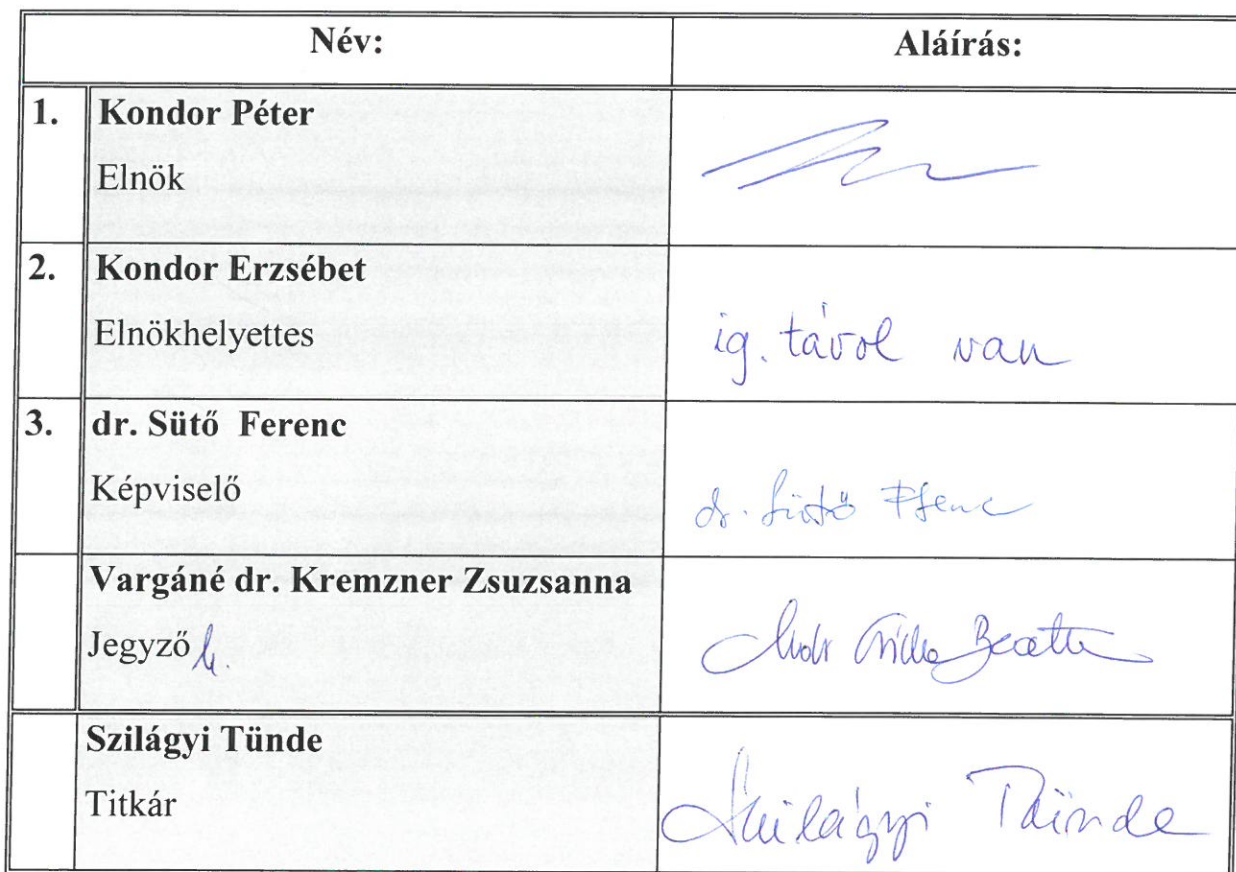 Név: Aláírás:
1. Kondor Péter
Elnök
2. Kondor Erzsébet
Elnökhelyettes ig. távol van
3. dr. Sütő Ferenc
Képviselő dr. Sütő Ferenc
Vargáné dr. Kremzner Zsuzsanna
Jegyző h. Beatta
Szilágyi Tünde
Titkár Szilágyi Tünde